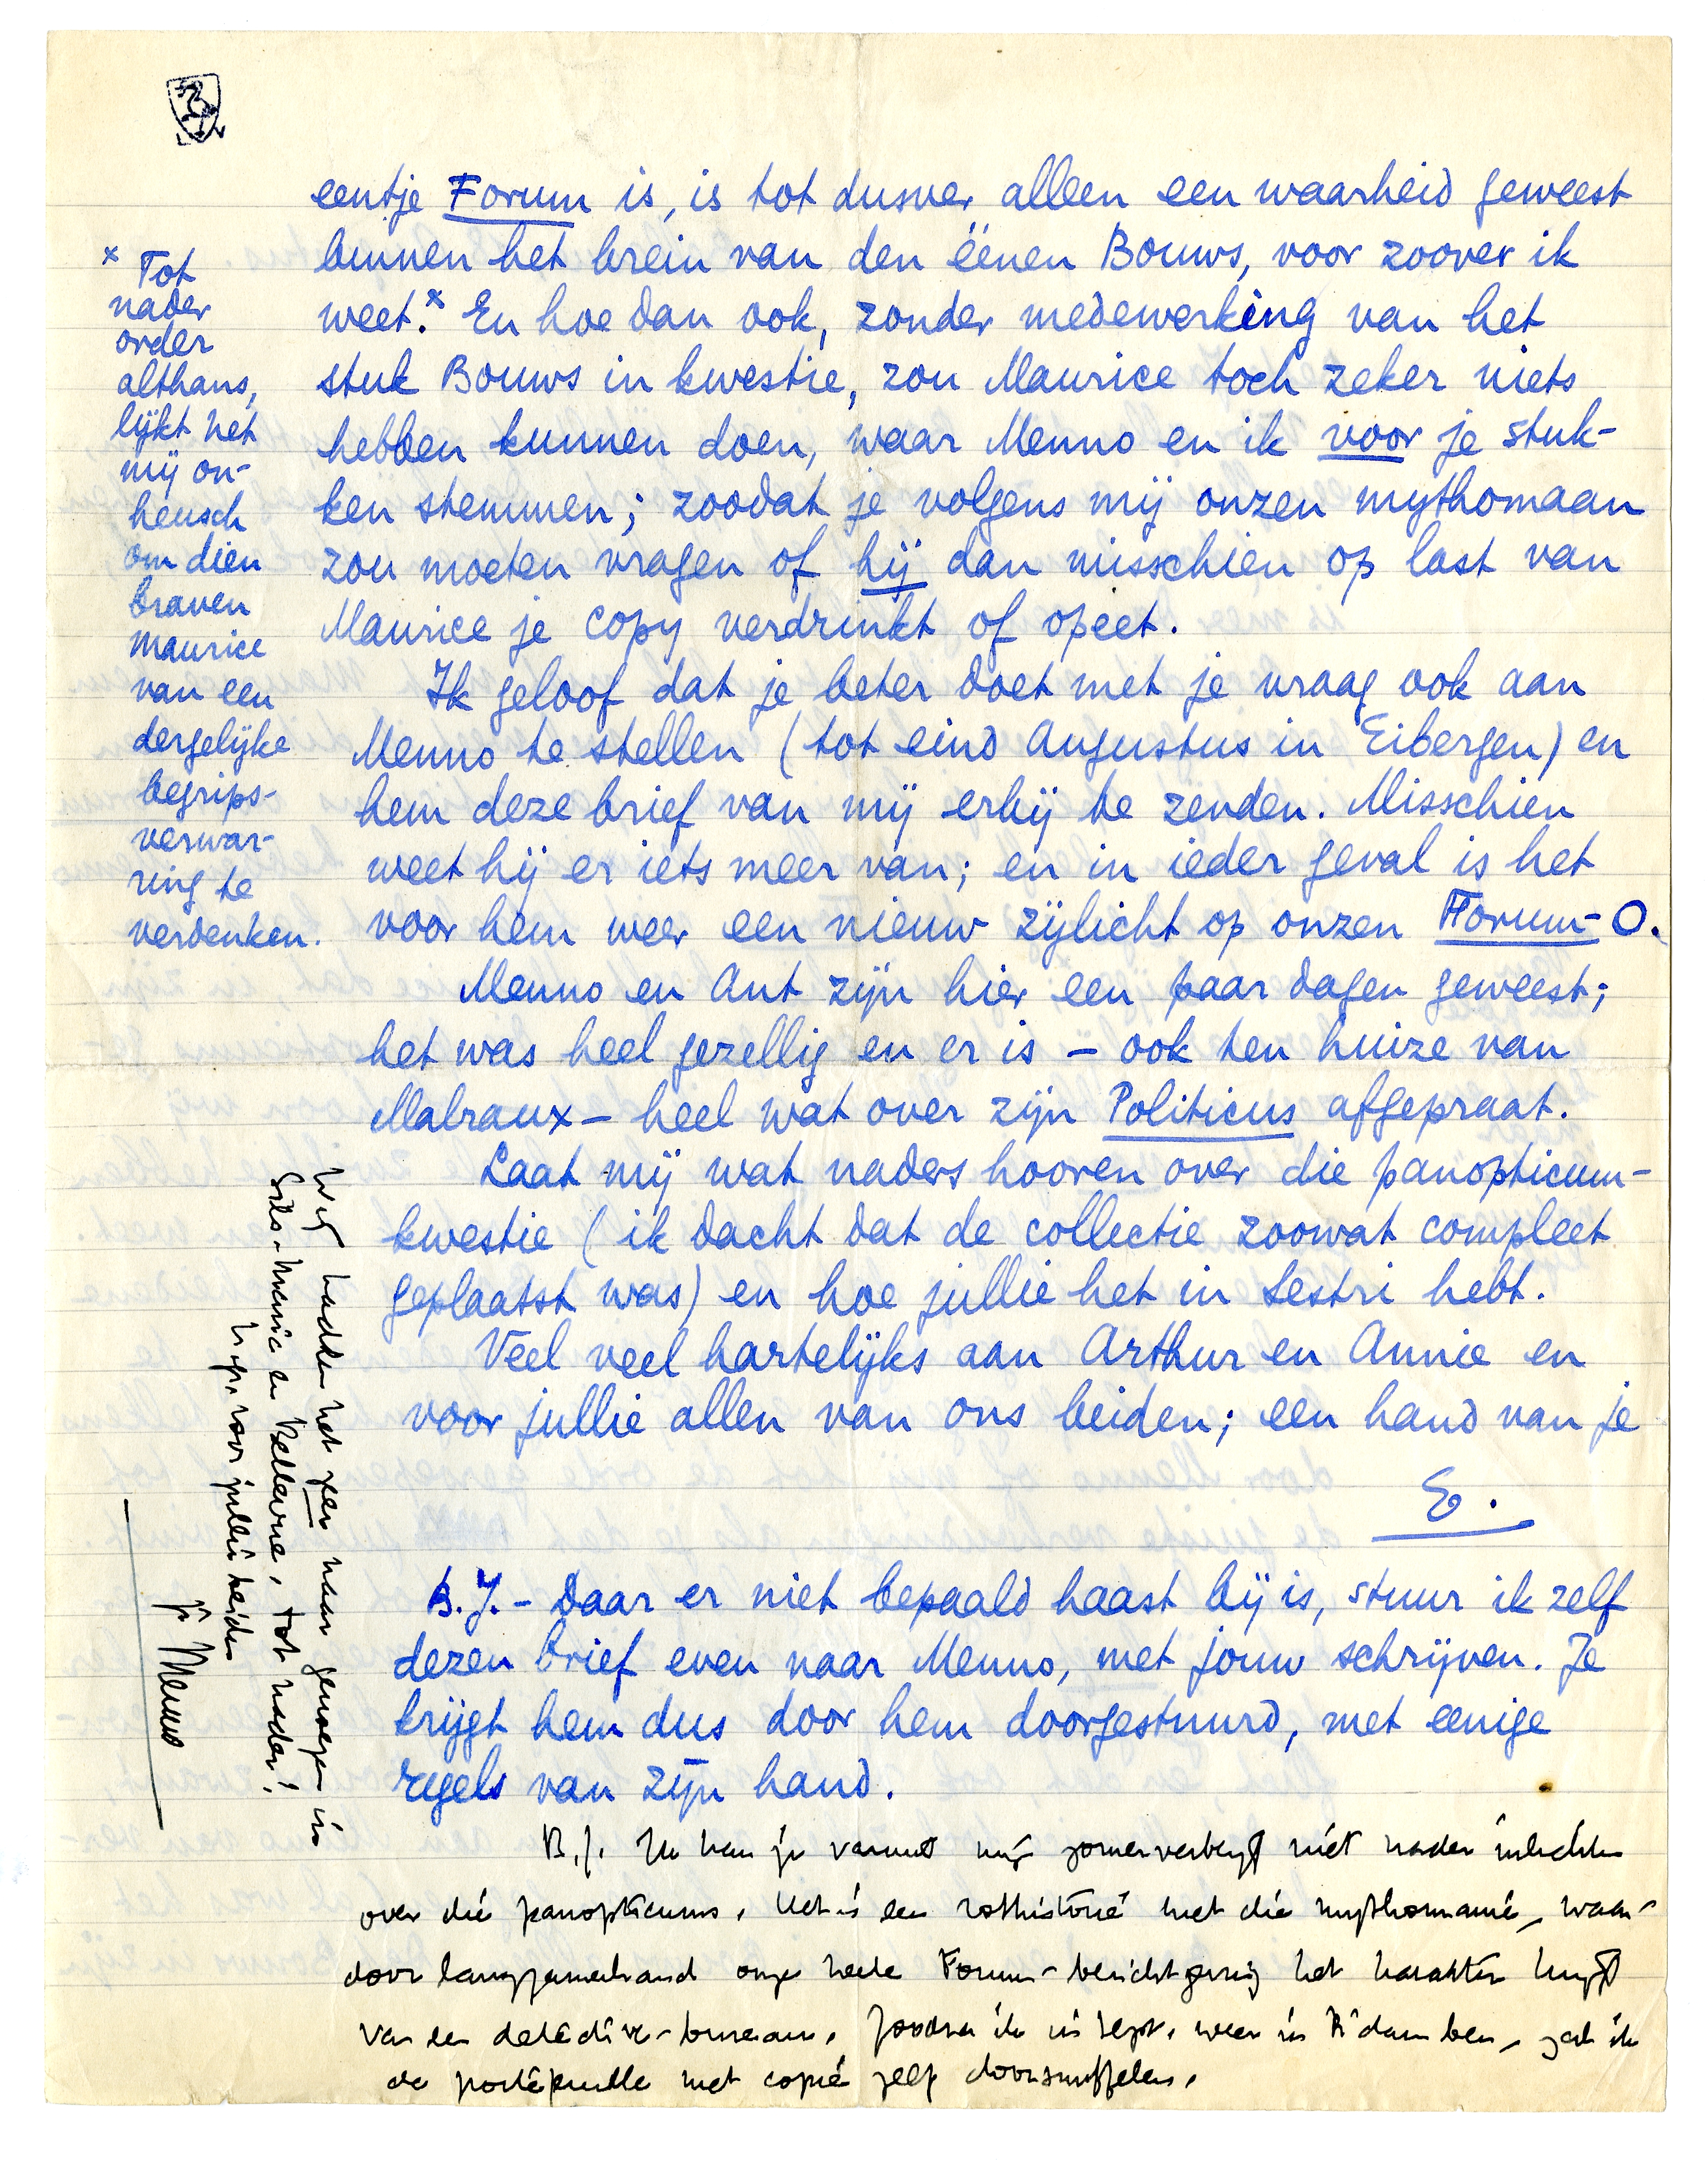 eentje Forum is, is tot dusver alleen een waarheid geweest
binnen het brein van den éénen Bouws, voor zoover ik
weet.x En hoe dan ook, zonder medewerking van het
stuk Bouws in kwestie, zou Maurice toch zeker niets
hebben kunnen doen, waar Menno en ik voor je stuk-
ken stemmen; zoodat je volgens mij onzen mythomaan
zou moeten vragen of hij dan misschien op last van
Maurice je copy verdrinkt of opeet.
Ik geloof dat je beter doet met je vraag ook aan
Menno te stellen (tot eind Augustus in Eibergen) en
hem deze brief van mij erbij te zenden. Misschien
weet hij er iets meer van; en in ieder geval is het
voor hem weer een nieuw zijlicht op onzen Forum-O.
Menno en Ant zijn hier een paar dagen geweest;
het was heel gezellig en er is – ook ten huize van
Malraux – heel wat over zijn Politicus afgepraat.
Laat mij wat naders hooren over die panopticum-
kwestie (ik dacht dat de collectie zoowat compleet
geplaatst was) en hoe jullie het in Sestri hebt.
Veel veel hartelijks aan Arthur en Annie en
voor jullie allen van ons beiden; een hand van je
E.
B.J. – Daar er niet bepaald haast bij is, stuur ik zelf
dezen brief even naar Menno, met jouw schrijven. Je
krijgt hem dus door hem doorgestuurd, met eenige
regels van zijn hand.
B.J. Ik kan je vanuit mijn zomerverblijf niet nader inlichten
over die panopticums. Het is een rothistorie met die mythomanie, waar-
door langzamerhand onze heele Forum-berichtgeving het karakter krijgt
van een detective-bureau. Zoodra ik in Sept. weer in R'dam ben, zal ik
de portefeuille met copie zelf doorsnuffelen.
x Tot
nader
order
althans,
lijkt het
mij on-
heusch
om dien
braven
Maurice
van een
dergelijke
begrips-
verwar-
ring te
verdenken.
Wij hadden het zeer naar genoegen in
Sils-Maria en Bellevue. Tot nader!
h. gr. voor jullie beiden
je Menno